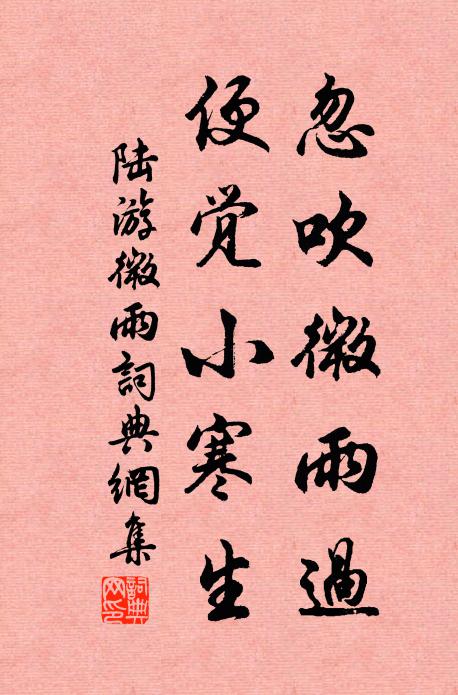 忽吹微雨過
便覺小寒生
陆游微雨詞典網集
詞典网印